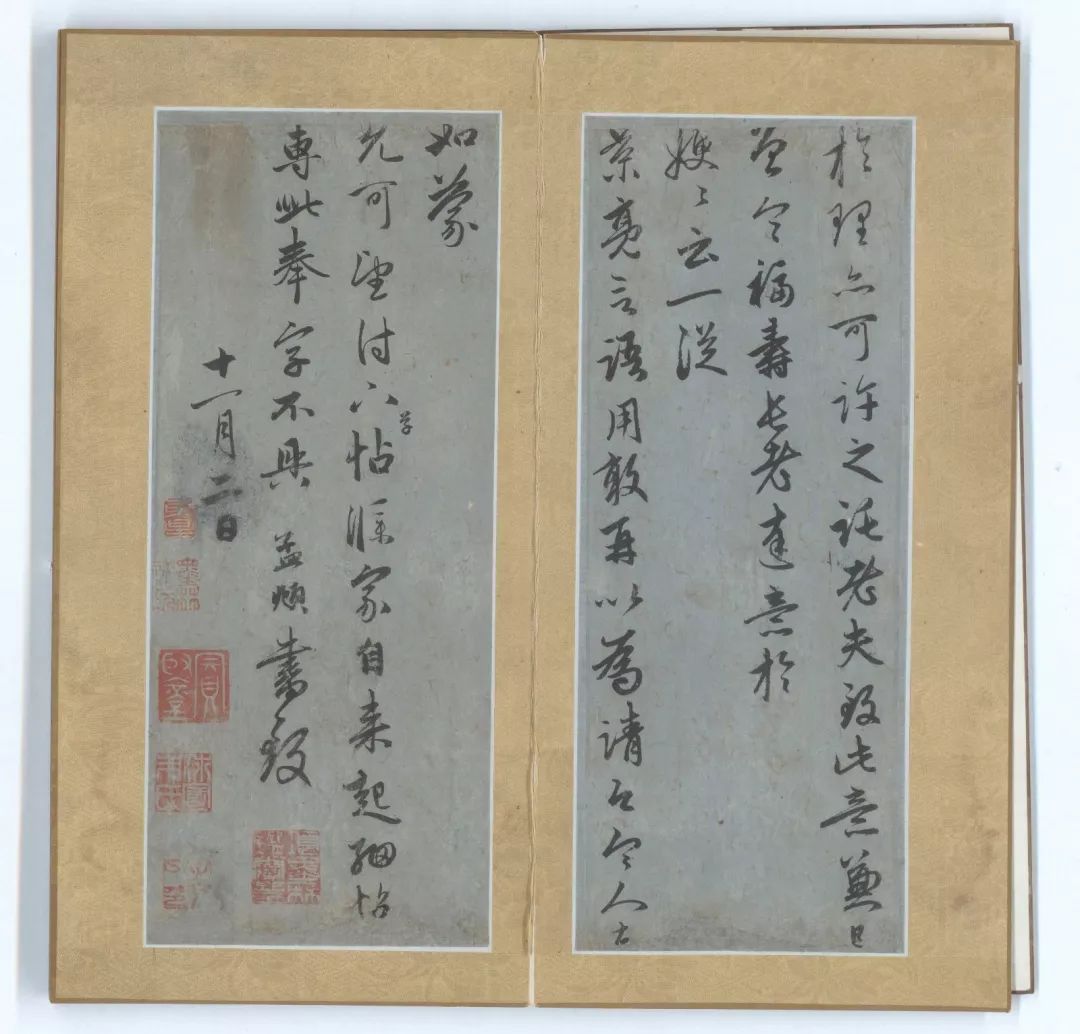 於理亦可許之託老夫致此意兼且
曾令福壽長老達意於
嫂〻云一從
景亮言語用敢再以為請令人
如蒙
允可望付下草帖渠家自來起細帖
專此奉字不具 孟頫書致
十一月二日